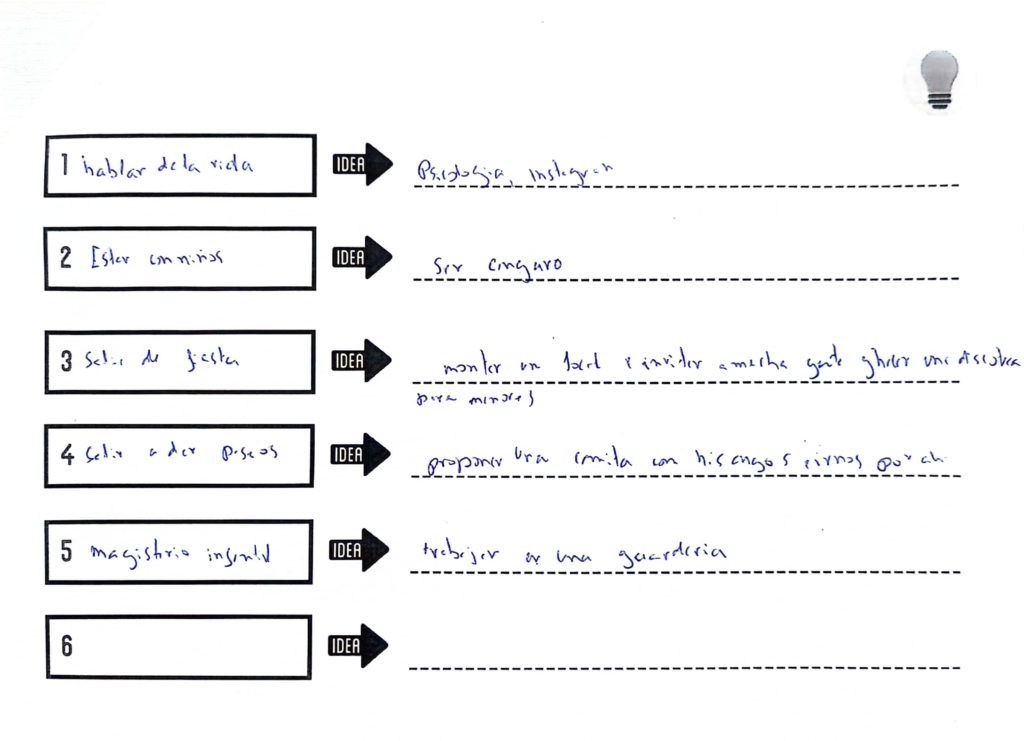 1 hablar de la vida IDEA Psicologia, instagram
2 Estar con niños IDEA Ser canguro
3 Salir de fiesta IDEA montar un local e invitar a mucha gente y hacer una discoteca
para menores
4 Salir a dar paseos IDEA proponer una comida con mis amigos e irnos por ahi
5 magisterio infantil IDEA trabajar en una guarderia
6 IDEA